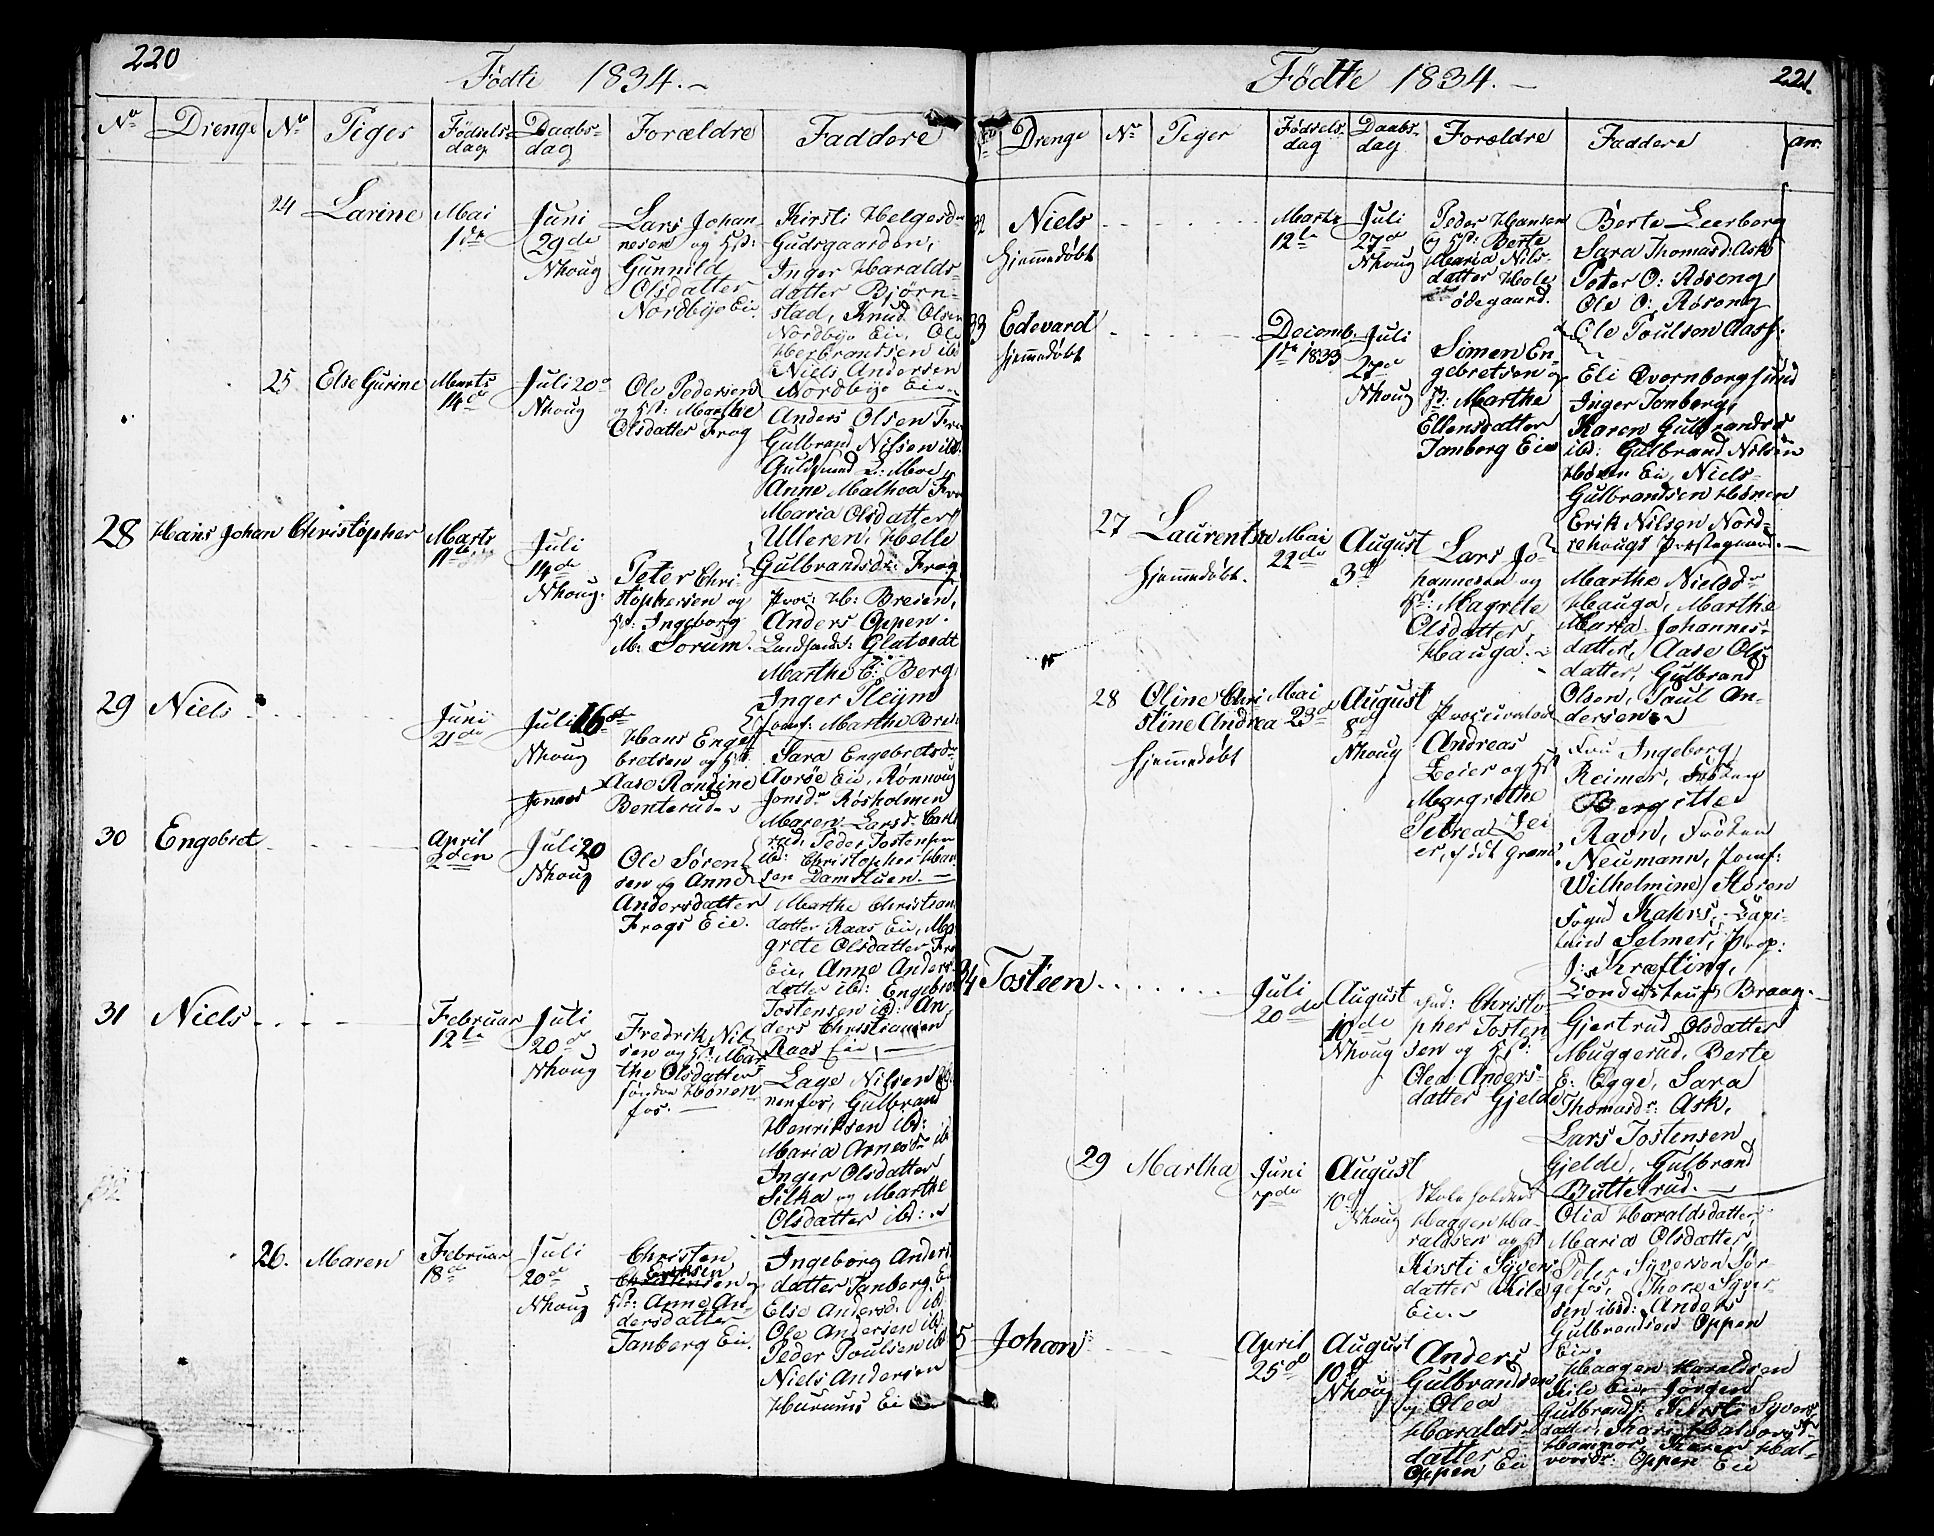 220
Fødte 1834.
No Drenge No Piger Fødsels-dag Daabs-dag Forældre Faddere
24 Larine
Mai
1ste
Juni
29de
Nhoug
Lars Johan-
nesen og Hst:
Gunnild
Olsdatter
Nordbye Eie
Kirsti Helgesdr
Gudsgaarden,
Inger Haralds-
datter Bjørn-
stad, Knud Olsen
Nordbye Eie, Ole
Herbrandsen ibd
Niels Andersen
Nordbye Eie
25 Else Gurine
Marts
14de
Juli 20de
Nhoug
Ole Pedersen
og Hst: Marthe
Olsdatter Frog
Anders Olsen Frog
Gulbrand Nilsen ibd.
Guldsund L. Moe
Anne Malhea Frog
Maria Olsdatter
Ulleren, Helle
Gulbrandsdr: Frog
28 Hans Johan Christopher
Marts
11te
Juli
14de
Nhoug.
Peter Chri-
stophersen og
Hst: Ingeborg
M: Sorum.
Proc: H: Breien,
Anders Oppen.
Landhandr: Glatvedt
Marthe C: Berg
Inger Pleym
Jomf: Marthe Brei
29 Niels
Juni
21de
Juli 16de
Nhoug
Hans Enge-
bretsen og Hst
Aase Rondine
Benterud
Sara Engebretsdr
Avrøe Eie, Rønnoug
Jonsdr Røsholmen
Maren Larsdr
rud, Peder Tostensen
ibd: Christopher Han-
sen Damstuen.
30 Engebret
April
2den
Juli 20
Nhoug
Ole Søren-
sen og Anne
Andersdatter
Frogs Eie.
Marthe Christian
datter Raas Eie, Ma-
grete Olsdatter Frog
Eie, Anne Anders-
datter ibd: Engebret
Tostensen ibd: An-
ders Christiansen
Raas Eie
31 Niels
Februar
12te
Juli
20de
Nhoug
Fredrik Nil-
sen og Hst: Mar-
the Olsdatter
søndre Hønen
fos.
Lage Nilsen Hø-
nenfos, Gulbrand
Henriksen ibd:
Maria Arnesdr ib
Inger Olsdatter
Silka og Marthe
Olsdatter ibd:
26. Maren
Februar
18de
Juli
20de
Nhoug
Christen
Eriksen og
Hst: Anne An-
dersdatter
Tanberg Eie.
Ingeborg Anders
datter Tanberg. E
Else Andersd: ibd
Ole Andersen ibd.
Peder Poulsen ibd
Niels Andersen
Hurums Eie
221.
Fødte 1834.
No Drenge No Piger Fødsels-dag Daabs-dag Forældre Faddere
32 Niels
hjemmedøbt
Marts
12te
Juli
27de
Nhoug
Peder Hansen
og Hst: Berte
Maria Nils-
datter Hole
ødegaard.
Berte Leerberg
Sara Thomasd: Ask
Peter O: Røseng
Ole O: Røseng
Ole Poulsen Aas
33 Edevard
hjemmedøbt
Decemb.
1ste 1833
Juli
27de
Nhoug
Simen En-
gebretsen og
Hst: Marthe
Ellensdatter
Tanberg Eie
Eli Overnbergsund
Inger Tanberg,
Karen Gulbrandsd
ibd: Gulbrand Nilsen
Hønen Eie, Niels
Gulbrandsen Hønen
Erik Nilsen Nord-
rehougs Præstegaard.
27 Laurentse
hjemmedøbt.
Mai
22de
August
3de
Lars Jo-
hannesen og
Hst: Magrete
Olsdatter,
Hauga.
Marthe Nielsdr
Hauga, Marthe
Maria Johannes-
datter, Aase Ols-
datter, Gulbrand
Olsen, Paul An-
dersen
28 Oline Chri-
stine Andrea
hjemmedøbt
Mai
23de
August
8de
Nhoug
Procurator
Andreas
Leier og Hst
Margrethe
Petrea Lei-
er, født Grøne
Fru Ingeborg
Reimer, Frøken
Bergitte
Ravn, Frøken
Neumann, Jomf:
Wilhelmine Støren
Fogd Kahrs, Capi-
tain Selmer, Prop:
J: Kræfting,
Conditstrup Braag.
34 Tosteen
Juli
20de
August
10de
Nhoug
Gud: Christo-
pher Tosten-
sen og Hst:
Olea Anders-
datter Gjelde
Gjertrud Olsdatter
Muggerud, Berte
E: Egge, Sara
Thomasdr: Ask,
Lars Tostensen
Gjelde, Gulbrand
Butterud.
29 Martha
Juni
7de
August
10de
Nhoug
Skoleholder
Haagen Ha-
raldsen og Hst
Kirsti Syvers-
datter Kile
Eie
Olia Haraldsdatter,
Maria Olsdatter,
Peter Syversen Sør-
gefos, Thore Syver-
sen ibd: Anders
Gulbrandsen Oppen
Eie.
5 Johan
April
25de
August
10de
Nhoug
Anders
Gulbrandsen
og Olea
Haralds-
datter
Oppen Eie
Haagen Haraldsen
Kile Eie, Jørgen
Gulbrands: Kirsti Syvers
datter, Kari Halvorsdr
Hamnor, Karen Hal-
vorsdr: Oppen Eie